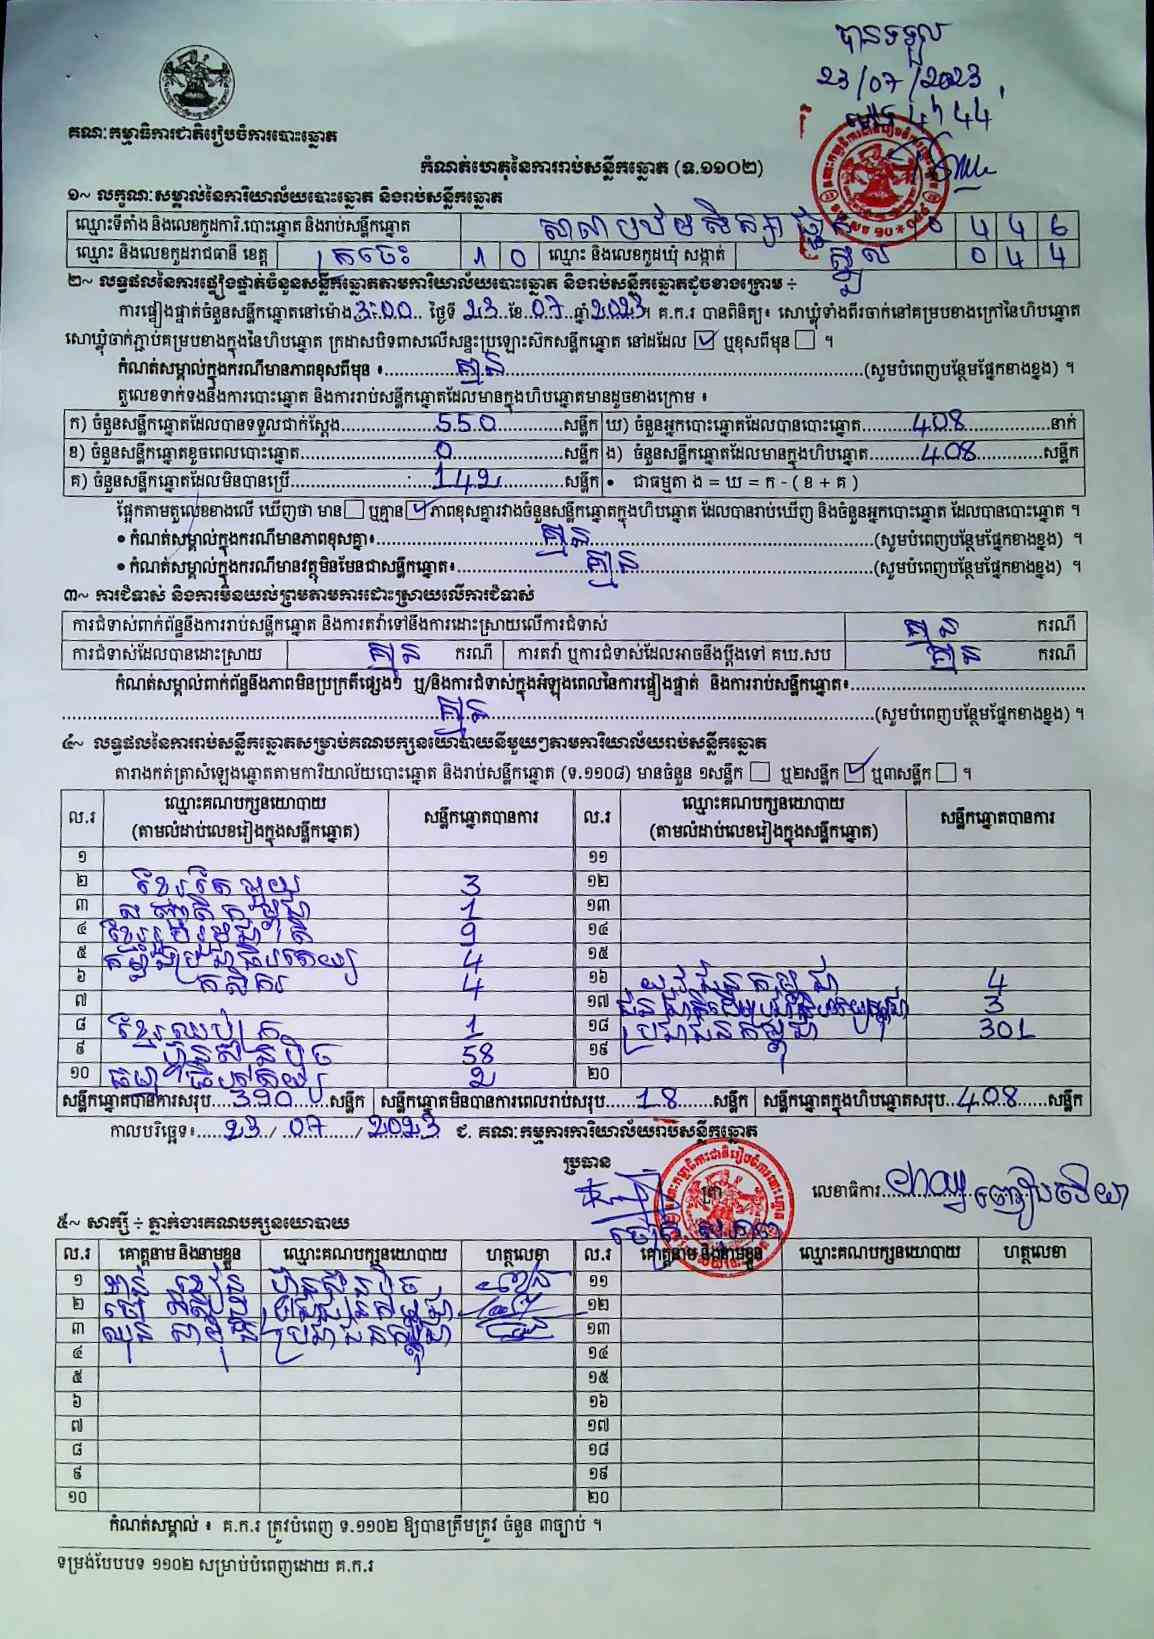 បានទទួល
23/07/2023
ម៉ោង 4:44
គណៈកម្មាធិការជាតិរៀបចំការបោះឆ្នោត
កំណត់ហេតុនៃការរាប់សន្លឹកឆ្នោត (ទ.១១០២)
១~ លក្ខណៈសម្គាល់នៃការិយាល័យបោះឆ្នោត និងរាប់សន្លឹកឆ្នោត
ឈ្មោះទីតាំង និងលេខកូដការិ.បោះឆ្នោត និងរាប់សន្លឹកឆ្នោត សាលាបឋមសិក្សា 0 4 4 6
ឈ្មោះ និងលេខកូដរាជធានី ខេត្ត ក្រចេះ 1 0 ឈ្មោះ និងលេខកូដឃុំ សង្កាត់ ស្នួល 0 4 4
២~ លទ្ធផលនៃការផ្ទៀងផ្ទាត់ចំនួនសន្លឹកឆ្នោតតាមការិយាល័យបោះឆ្នោត និងរាប់សន្លឹកឆ្នោតដូចខាងក្រោម ÷
ការផ្ទៀងផ្ទាត់ចំនួនសន្លឹកឆ្នោតនៅម៉ោង 3:00 ថ្ងៃទី 23 ខែ 07 ឆ្នាំ 2023។ គ.ក.រ បានពិនិត្យ៖ សោឃ្លុំទាំងពីរចាក់នៅគម្របខាងក្រៅនៃហិបឆ្នោត
សោឃ្លុំចាក់ភ្ជាប់គម្របខាងក្នុងនៃហិបឆ្នោត ក្រដាសបិទពាសលើសន្ទះប្រឡោះស៊កសន្លឹកឆ្នោត នៅដដែល ☑ ឬខុសពីមុន ☐ ។
កំណត់សម្គាល់ក្នុងករណីមានភាពខុសពីមុន ៖ គ្មាន (សូមបំពេញបន្ថែមផ្នែកខាងខ្នង) ។
តួលេខទាក់ទងនឹងការបោះឆ្នោត និងការរាប់សន្លឹកឆ្នោតដែលមានក្នុងហិបឆ្នោតមានដូចខាងក្រោម ៖
ក) ចំនួនសន្លឹកឆ្នោតដែលបានទទួលជាក់ស្តែង 550 សន្លឹក ឃ) ចំនួនអ្នកបោះឆ្នោតដែលបានបោះឆ្នោត 408 នាក់
ខ) ចំនួនសន្លឹកឆ្នោតខូចពេលបោះឆ្នោត 0 សន្លឹក ង) ចំនួនសន្លឹកឆ្នោតដែលមានក្នុងហិបឆ្នោត 408 សន្លឹក
គ) ចំនួនសន្លឹកឆ្នោតដែលមិនបានប្រើ 142 សន្លឹក • ជាធម្មតា ង = ឃ = ក - ( ខ + គ )
ផ្អែកតាមតួលេខខាងលើ ឃើញថា មាន ☐ ឬគ្មាន ☑ ភាពខុសគ្នារវាងចំនួនសន្លឹកឆ្នោតក្នុងហិបឆ្នោត ដែលបានរាប់ឃើញ និងចំនួនអ្នកបោះឆ្នោត ដែលបានបោះឆ្នោត ។
• កំណត់សម្គាល់ក្នុងករណីមានភាពខុសគ្នា៖ គ្មាន (សូមបំពេញបន្ថែមផ្នែកខាងខ្នង) ។
• កំណត់សម្គាល់ក្នុងករណីមានវត្ថុមិនមែនជាសន្លឹកឆ្នោត៖ គ្មាន (សូមបំពេញបន្ថែមផ្នែកខាងខ្នង) ។
៣~ ការជំទាស់ និងការមិនយល់ព្រមតាមការដោះស្រាយលើការជំទាស់
ការជំទាស់ពាក់ព័ន្ធនឹងការរាប់សន្លឹកឆ្នោត និងការតវ៉ាទៅនឹងការដោះស្រាយលើការជំទាស់ គ្មាន ករណី
ការជំទាស់ដែលបានដោះស្រាយ គ្មាន ករណី ការតវ៉ា ឬការជំទាស់ដែលអាចនឹងប្តឹងទៅ គឃ.សប គ្មាន ករណី
កំណត់សម្គាល់ពាក់ព័ន្ធនឹងភាពមិនប្រក្រតីផ្សេងៗ ឬ/និងការជំទាស់ក្នុងអំឡុងពេលនៃការផ្ទៀងផ្ទាត់ និងការរាប់សន្លឹកឆ្នោត៖
គ្មាន (សូមបំពេញបន្ថែមផ្នែកខាងខ្នង) ។
៤~ លទ្ធផលនៃការរាប់សន្លឹកឆ្នោតសម្រាប់គណបក្សនយោបាយនីមួយៗតាមការិយាល័យរាប់សន្លឹកឆ្នោត
តារាងកត់ត្រាសំឡេងឆ្នោតតាមការិយាល័យបោះឆ្នោត និងរាប់សន្លឹកឆ្នោត (ទ.១១០៨) មានចំនួន ១សន្លឹក ☐ ឬ២សន្លឹក ☑ ឬ៣សន្លឹក ☐ ។
ល.រ ឈ្មោះគណបក្សនយោបាយ (តាមលំដាប់លេខរៀងក្នុងសន្លឹកឆ្នោត) សន្លឹកឆ្នោតបានការ ល.រ ឈ្មោះគណបក្សនយោបាយ (តាមលំដាប់លេខរៀងក្នុងសន្លឹកឆ្នោត) សន្លឹកឆ្នោតបានការ
១ ១១
២ ខ្មែរតែមួយ 3 ១២
៣ សញ្ជាតិកម្ពុជា 1 ១៣
៤ ខ្មែររួបរួមជាតិ 9 ១៤
៥ កម្លាំងប្រជាធិបតេយ្យ 4 ១៥
៦ កសិករ 4 ១៦ យុវជនកម្ពុជា 4
៧ ១៧ ជនជាតិដើមប្រជាធិបតេយ្យកម្ពុជា 3
៨ ខ្មែរឈប់ក្រ 1 ១៨ ប្រជាជនកម្ពុជា 301
៩ ហ៊្វុនស៊ិនប៉ិច 58 ១៩
១០ ធម្មាធិបតេយ្យ 2 ២០
សន្លឹកឆ្នោតបានការសរុប 390 សន្លឹក សន្លឹកឆ្នោតមិនបានការពេលរាប់សរុប 18 សន្លឹក សន្លឹកឆ្នោតក្នុងហិបឆ្នោតសរុប 408 សន្លឹក
កាលបរិច្ឆេទ៖ 23 / 07 / 2023 ជ. គណៈកម្មការការិយាល័យរាប់សន្លឹកឆ្នោត
ប្រធាន
ត្រា លេខាធិការ
៥~ សាក្សី ÷ ភ្នាក់ងារគណបក្សនយោបាយ
ល.រ គោត្តនាម និងនាមខ្លួន ឈ្មោះគណបក្សនយោបាយ ហត្ថលេខា ល.រ គោត្តនាម និងនាមខ្លួន ឈ្មោះគណបក្សនយោបាយ ហត្ថលេខា
១ ហ៊្វុនស៊ិនប៉ិច ១១
២ ប្រជាជនកម្ពុជា ១២
៣ ប្រជាជនកម្ពុជា ១៣
៤ ១៤
៥ ១៥
៦ ១៦
៧ ១៧
៨ ១៨
៩ ១៩
១០ ២០
កំណត់សម្គាល់ ៖ គ.ក.រ ត្រូវបំពេញ ទ.១១០២ ឱ្យបានត្រឹមត្រូវ ចំនួន ៣ច្បាប់ ។
ទម្រង់បែបបទ ១១០២ សម្រាប់បំពេញដោយ គ.ក.រ